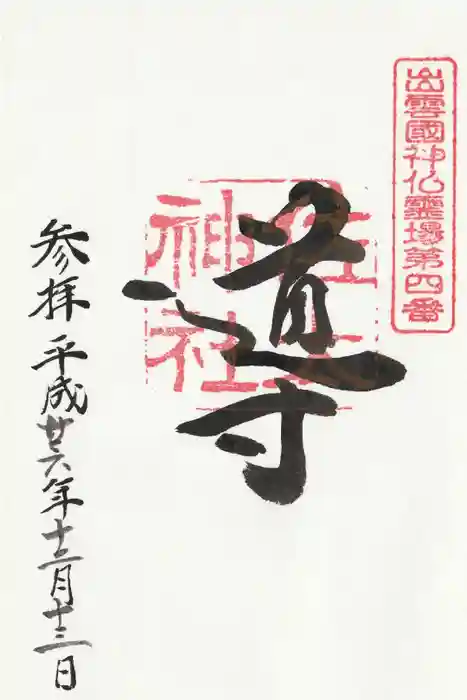 出雲國神仏霊場第四番
導
佐太
神社
参拝 平成廿六年十二月十三日